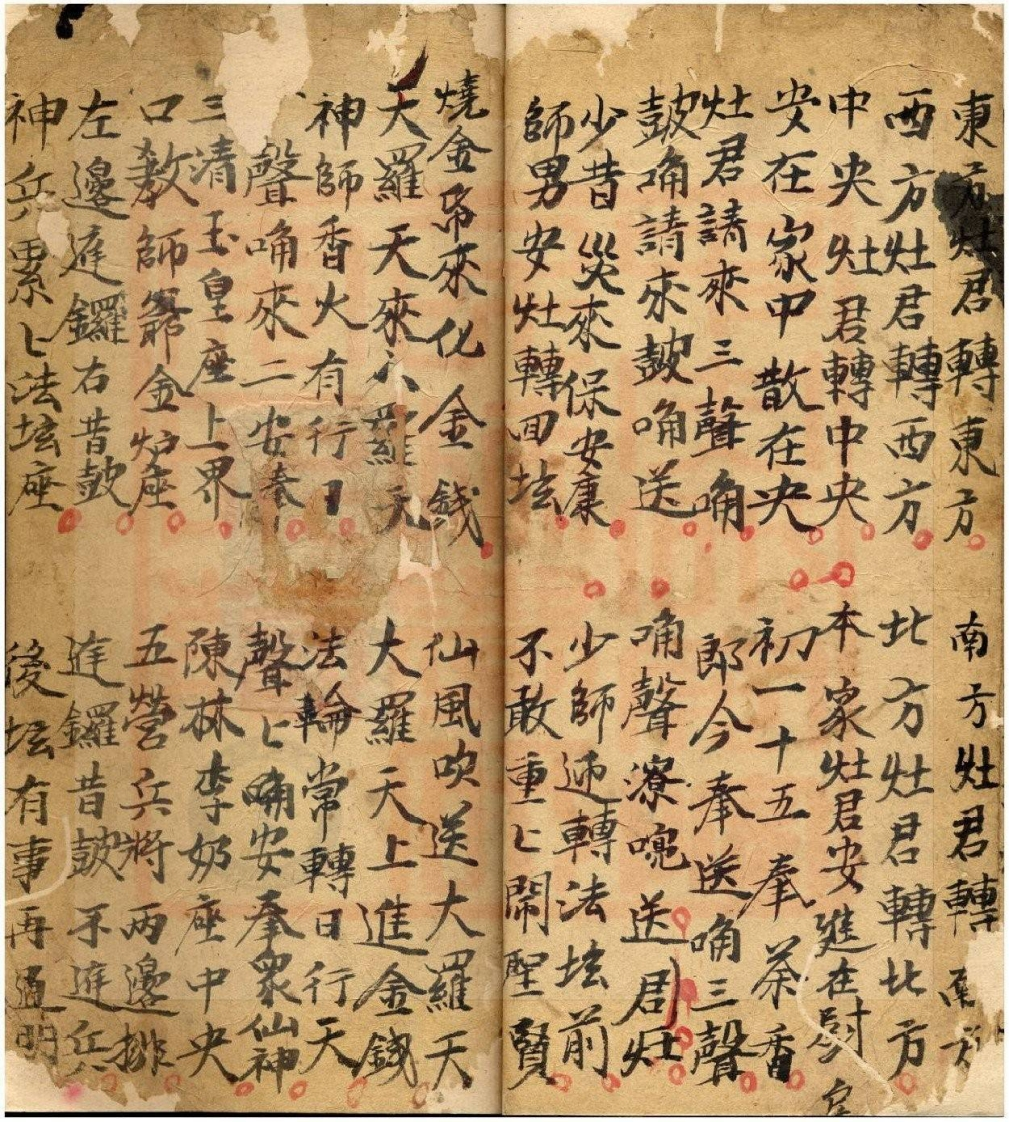 東方灶君轉東方 南方灶君轉南方
西方灶君轉西方 北方灶君轉北方
中央灶君轉中央 本家灶君安進在厨
安在家中散在央 初一十五奉茶香
灶君請來三聲喃 郎今奉送喃三聲
皷喃請來皷喃送 喃聲送君灶
少昔災來保安康 少師迎轉法坛前
師男安灶轉回坛 不敢重〻鬧聖賢
燒金帋來化金錢 仙風吹送大羅天
天羅天來 羅天 大羅天上進金錢
神師香火有行 法輪常轉日行天
聲喃來二安奉 聲〻喃安奉眾仙神
三清玉皇座上界 陳林李奶座中央
口教師爺金炉座 五營兵將兩邊排
左邊進鑼右昔皷 進鑼昔皷不進兵
神兵累〻法坛座 後坛有事再通明